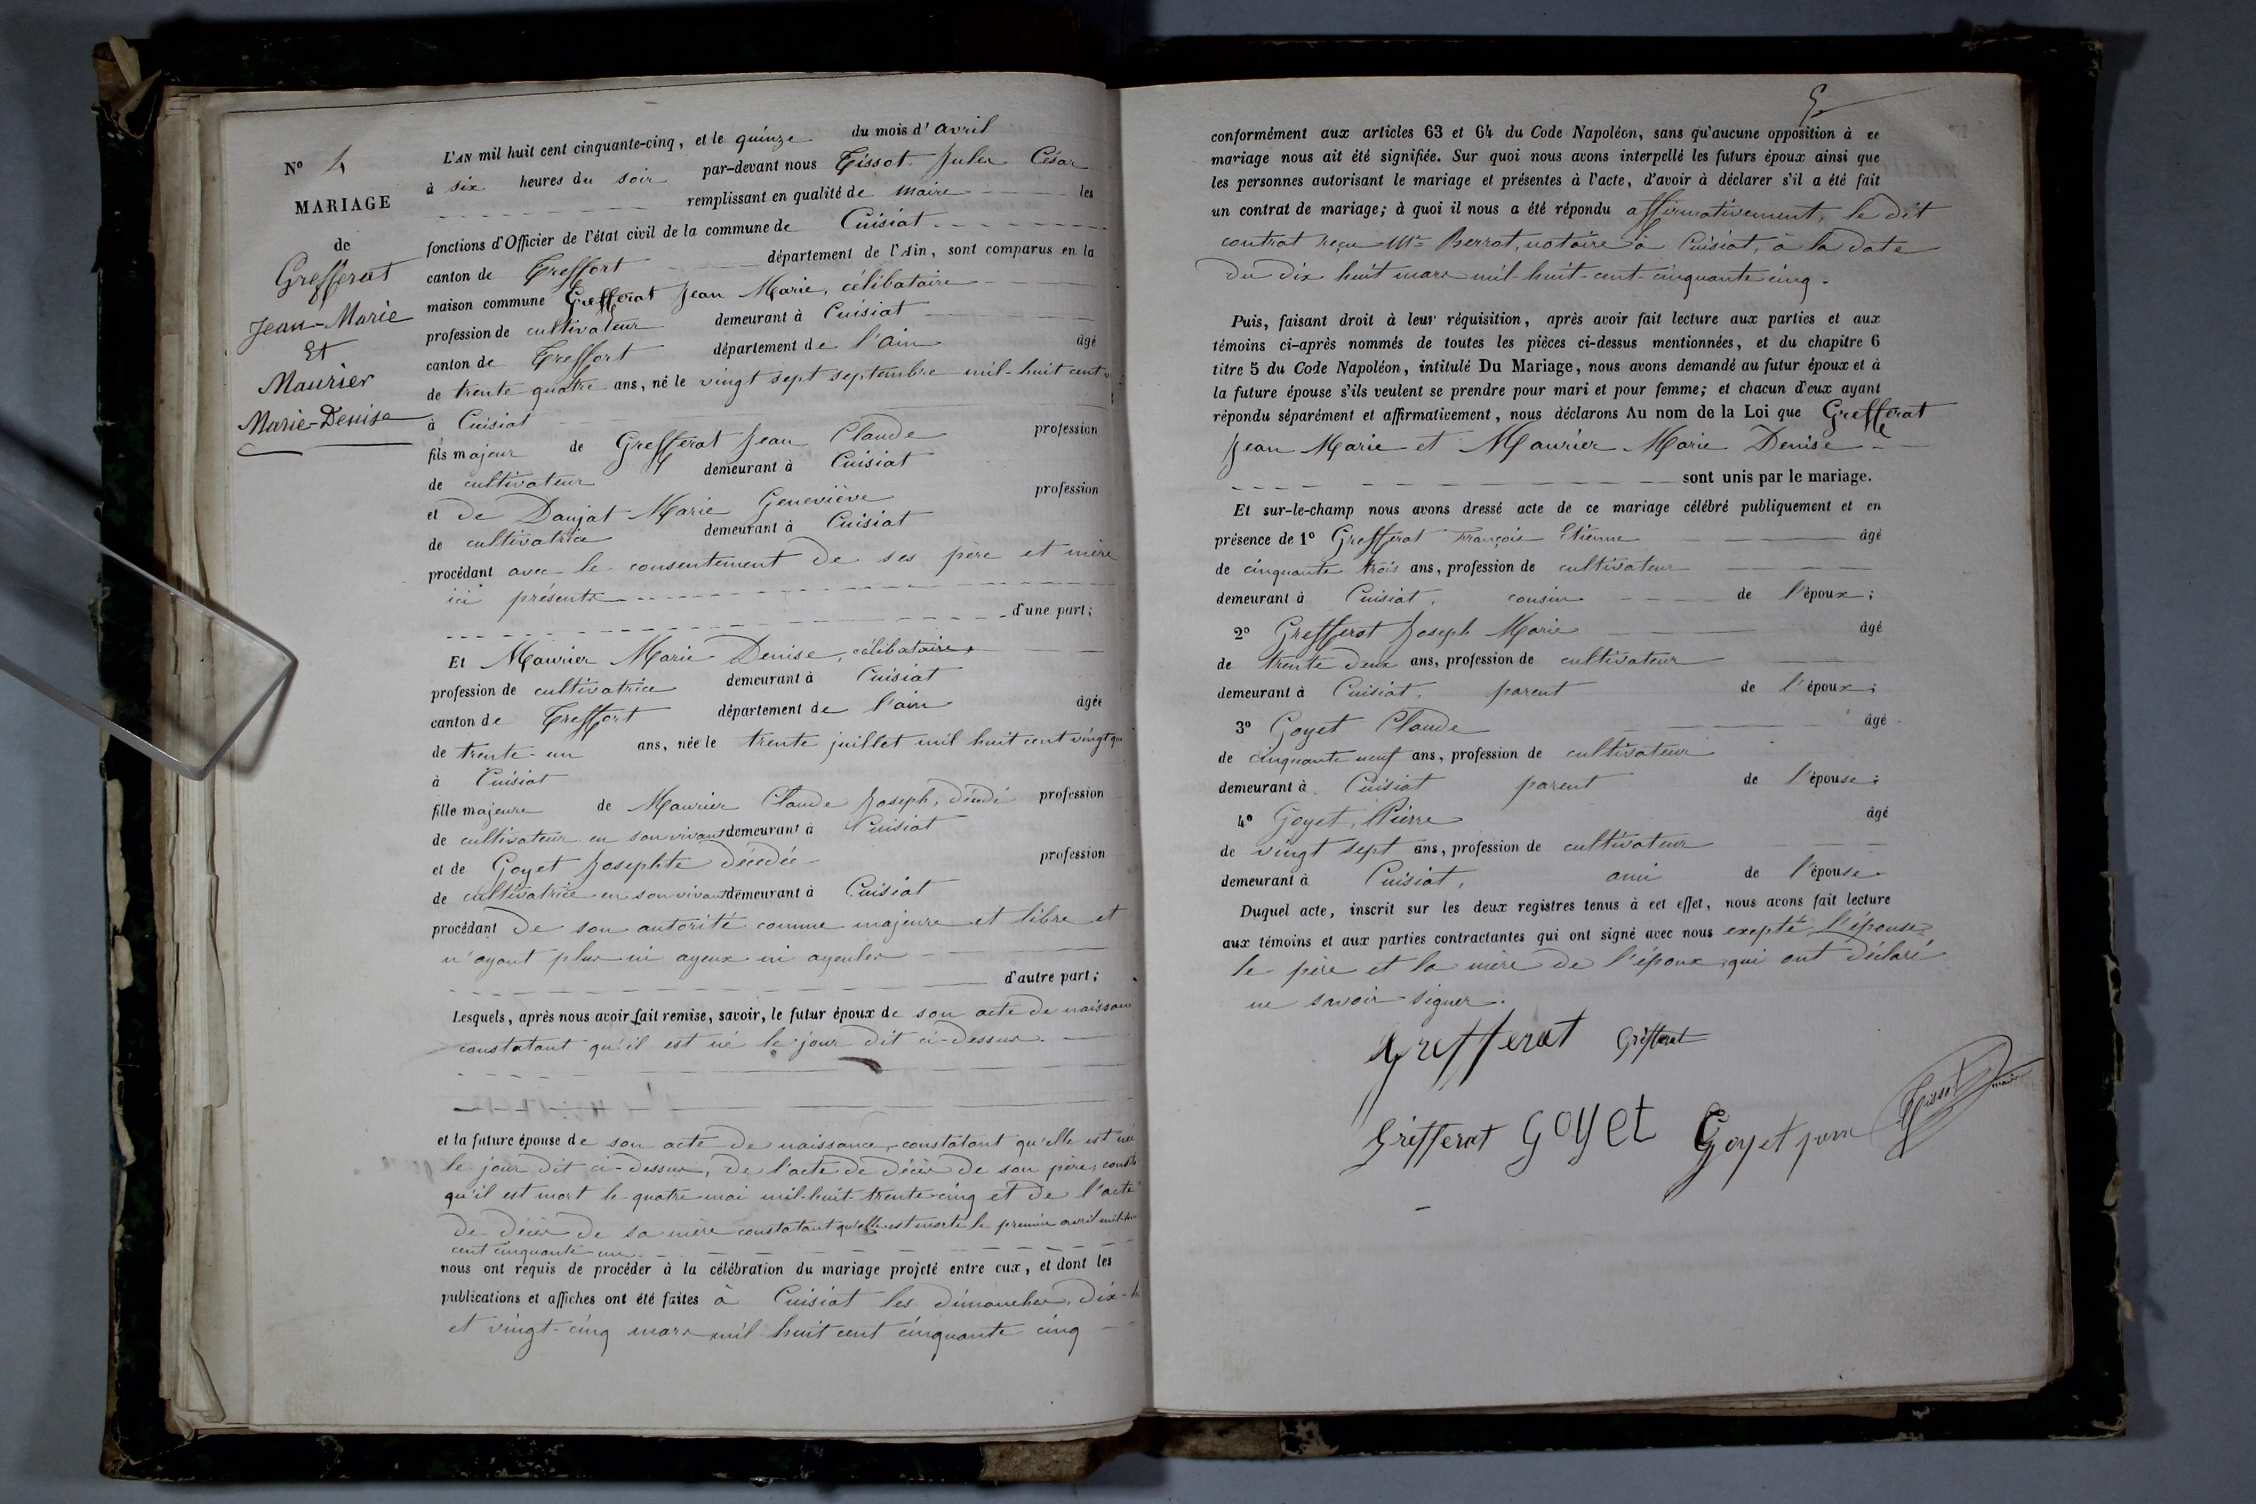 N° 4
MARIAGE
de
Grefferat
Jean-Marie
Et
Maurier
Marie-Denise
L'AN mil huit cent cinquante-cinq, et le quinze du mois d'avril
à six heures du soir par-devant nous Tissot Jules César
remplissant en qualité de maire les
fonctions d'Officier de l'état civil de la commune de Cuisiat
canton de Treffort département de l'Ain, sont comparus en la
maison commune Grefferat Jean Marie, célibataire
profession de cultivateur demeurant à Cuisiat
canton de Treffort département de l'ain âgé
de trente quatre ans, né le vingt sept septembre mil-huit cent
à Cuisiat
fils majeur de Grefferat Jean Claude profession
de cultivateur demeurant à Cuisiat
et de Daujat Marie Geneviève profession
de cultivatrice demeurant à Cuisiat
procédant avec le consentement de ses père et mère
ici présents
d'une part;
Et Maurier Marie Denise, célibataire,
profession de cultivatrice demeurant à Cuisiat
canton de Treffort département de l'ain âgée
de trente-un ans, née le trente juillet mil huit cent vingt
à Cuisiat
fille majeure de Maurier Claude Joseph, profession
de cultivateur en son vivant demeurant à Cuisiat
et de Goyet Josephte décédée profession
de cultivatrice en son vivant demeurant à Cuisiat
procédant de son autorité comme majeure et libre et
n'ayant plus ni ayeux ni ayeules
d'autre part;
Lesquels, après nous avoir fait remise, savoir, le futur époux de son acte de naissance
constatant qu'il est né le jour dit ci-dessus.
et la future épouse de son acte de naissance, constatant qu'elle est née
le jour dit ci-dessus, de l'acte de décès de son père,
qu'il est mort le quatre mai mil-huit trente-cinq et de l'acte
de décès de sa mère constatant qu'elle est morte le premier avril
cent cinquante-un
nous ont requis de procéder à la célébration du mariage projeté entre eux, et dont les
publications et affiches ont été faites à Cuisiat les dimanches, dix-h
et vingt-cinq mars mil huit cent cinquante cinq
5
conformément aux articles 63 et 64 du Code Napoléon, sans qu'aucune opposition à ce
mariage nous ait été signifiée. Sur quoi nous avons interpellé les futurs époux ainsi que
les personnes autorisant le mariage et présentes à l'acte, d'avoir à déclarer s'il a été fait
un contrat de mariage; à quoi il nous a été répondu affirmativement, le dit
contrat reçu Me Berrot, notaire à Cuisiat, à la date
du dix huit mars mil-huit-cent-cinquante cinq.
Puis, faisant droit à leur réquisition, après avoir fait lecture aux parties et aux
témoins ci-après nommés de toutes les pièces ci-dessus mentionnées, et du chapitre 6
titre 5 du Code Napoléon, intitulé Du Mariage, nous avons demandé au futur époux et à
la future épouse s'ils veulent se prendre pour mari et pour femme; et chacun d'eux ayant
répondu séparément et affirmativement, nous déclarons Au nom de la Loi que Grefferat
Jean Marie et Maurier Marie Denise
sont unis par le mariage.
Et sur-le-champ nous avons dressé acte de ce mariage célébré publiquement et en
présence de 1° Grefferat François Etienne âgé
de cinquante trois ans, profession de cultivateur
demeurant à Cuisiat, cousin de l'époux;
2° Grefferat Joseph Marie âgé
de trente deux ans, profession de cultivateur
demeurant à Cuisiat, parent de l'époux;
3° Goyet Claude âgé
de cinquante neuf ans, profession de cultivateur
demeurant à Cuisiat parent de l'épouse;
4° Goyet, Pierre âgé
de vingt sept ans, profession de cultivateur
demeurant à Cuisiat, ami de l'épouse.
Duquel acte, inscrit sur les deux registres tenus à cet effet, nous avons fait lecture
aux témoins et aux parties contractantes qui ont signé avec nous exepté l'épouse
le père et la mère de l'époux qui ont déclaré
ne savoir signer.
Grefferat Grefferat
Grefferat GOYET Goyet Tissot maire